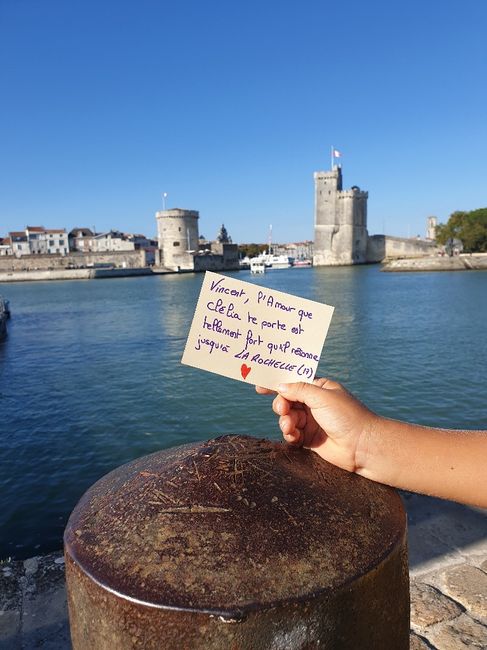 Vincent, l'Amour que
clélia te porte est
tellement fort qu'il résonne
jusqu'à LA ROCHELLE (17)